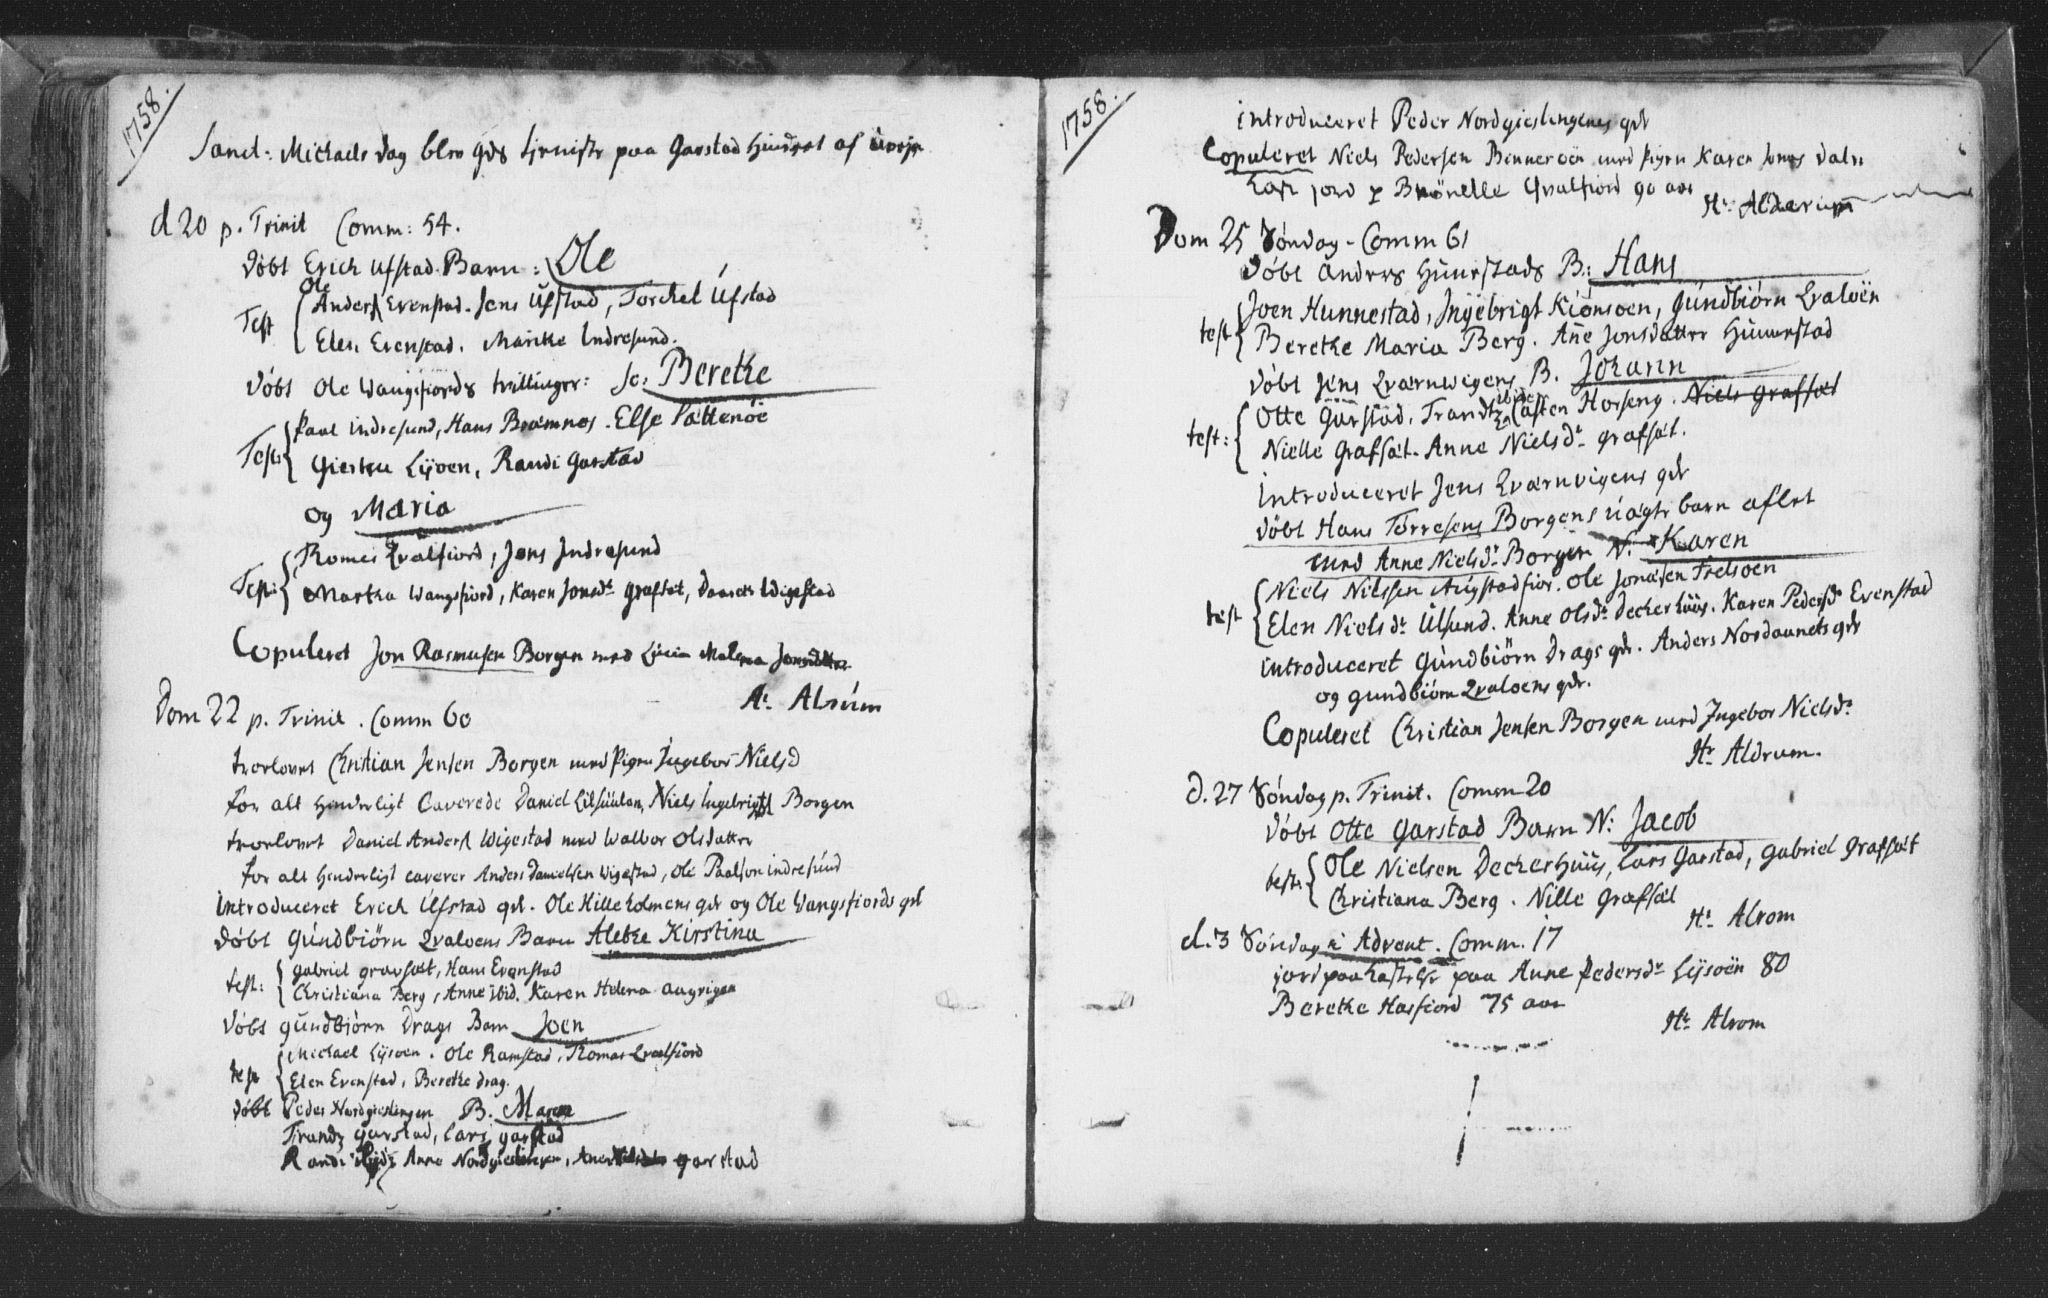 1758.
Sanct: Michaels dag blev gds tjeniste paa Garstad hindret af uvejr
d 20 p. Trinit Comm: 54.
döbt Erich Ufstad Barn: Ole
Test Ole Anders Evenstad. Jens Ufstad, Torchel Ufstad
Elen Evenstad. Maritke Indresund.
döbt Ole Wangsfiords tvillinger: Berethe
Test: Paal indresund, Hans Bramnes. Else Pættenöe
Giertru Lijöen, Randi Garstad
og Maria
Test: Thomes Qvalfiord, Jens Indresund
Martha Wangsfiord, Karen Jonsdr grafset, Wigestad
Copuleret Jon Rasmusen Borgen med Lucia Malena Jonsdatter
Hr Alrúm
Dom 22 p. Trinit. Comm 60
trorlovet Christian Jensen Borgen med Pigen Ingebor Nielsd
for alt henderligt Caverede Daniel Niels Ingebrigts Borgen
trorlovet Daniel Anders Wigestad med Walbor Olsdatter
for alt henderligt caverer Anders Danielsen Wigestad, Ole Paalson indresúnd
introduceret Erich Úfstad qdr. Ole Hilleholmens qdr og Ole Wangsfiords qdr
döbt Gúndbiörn Qvalöens Barn Aletke Kirstina
test: gabriel gravsæt, Hans Evenstad
Christiana Berg, Anne ibid. Karen Helena aagrigen
döbt gúndbiörn Drags Barn Joen
test Michael Lijsoen. Ole Ramstad, Thomas Qvalfiord
Elen Evenstad, Berethe drag.
döbt Peder Nordgieslingen B. Maren
Trands garstad, Lars garstad
Randi Anne Nordgieslingen, garstad
1758.
introduceret Peder Nordgieslingens qdr
Copuleret Niels Pedersen Binneröen med Pigen Karen Jonns
Kast jord p Brönelle Qvalfiord 90 aar
Hr. Alderum
Dom 25 Söndag - Comm 61
döbt Anders Húnrstads B: Hans
test Joen Hunnestad, Ingebrigt Kiönsoen, Gúndbiörn Qvaloën
Berethe Maria Berg. Añe Jonsdatter Húnnrstad
döbt Jens Qværnwigens B. Johann
test: Otte Garstad, Trands ibidem Casten Horseng. Niels Grafsæt
Nielle Grafsæt. Anne Nielsdr grafsæt.
introduceret Jens Qværnvigens qdr
döbt Hans Torresens Borgens uægte barn aflet
med Anne Nielsdr Borgen N: Karen
test Niels Nilssen Aúgstadfior. Ole Jonasen Frelsöen
Elen Nielsdr Úlsund. Anne Olsdr Deckerhúús. Karen Pedersdr Evenstad
introduceret Gúndbiörn Drags qdr. Anders Nordaunets qdr
og gundbiörn Qvaloens qdr.
Copuleret Christian Jensen Borgen med Ingebor Nielsdr
Hr Aldrum.
d. 27 Söndag p. Trinit. Comm 20
döbt Otte Garstad Barn N: Jacob
test: Ole Nielsen Deckerhúús, Lars Garstad, gabriel Grafsæt
Christiana Berg. Nille Grafsæt
Hr Alrom
d. 3 Söndag i Advent. Comm. 17
jord paa kastelse paa Anne Pedersdr Lijsoën 80
Berethe Hasfiord 75 aar
Hr Alrom